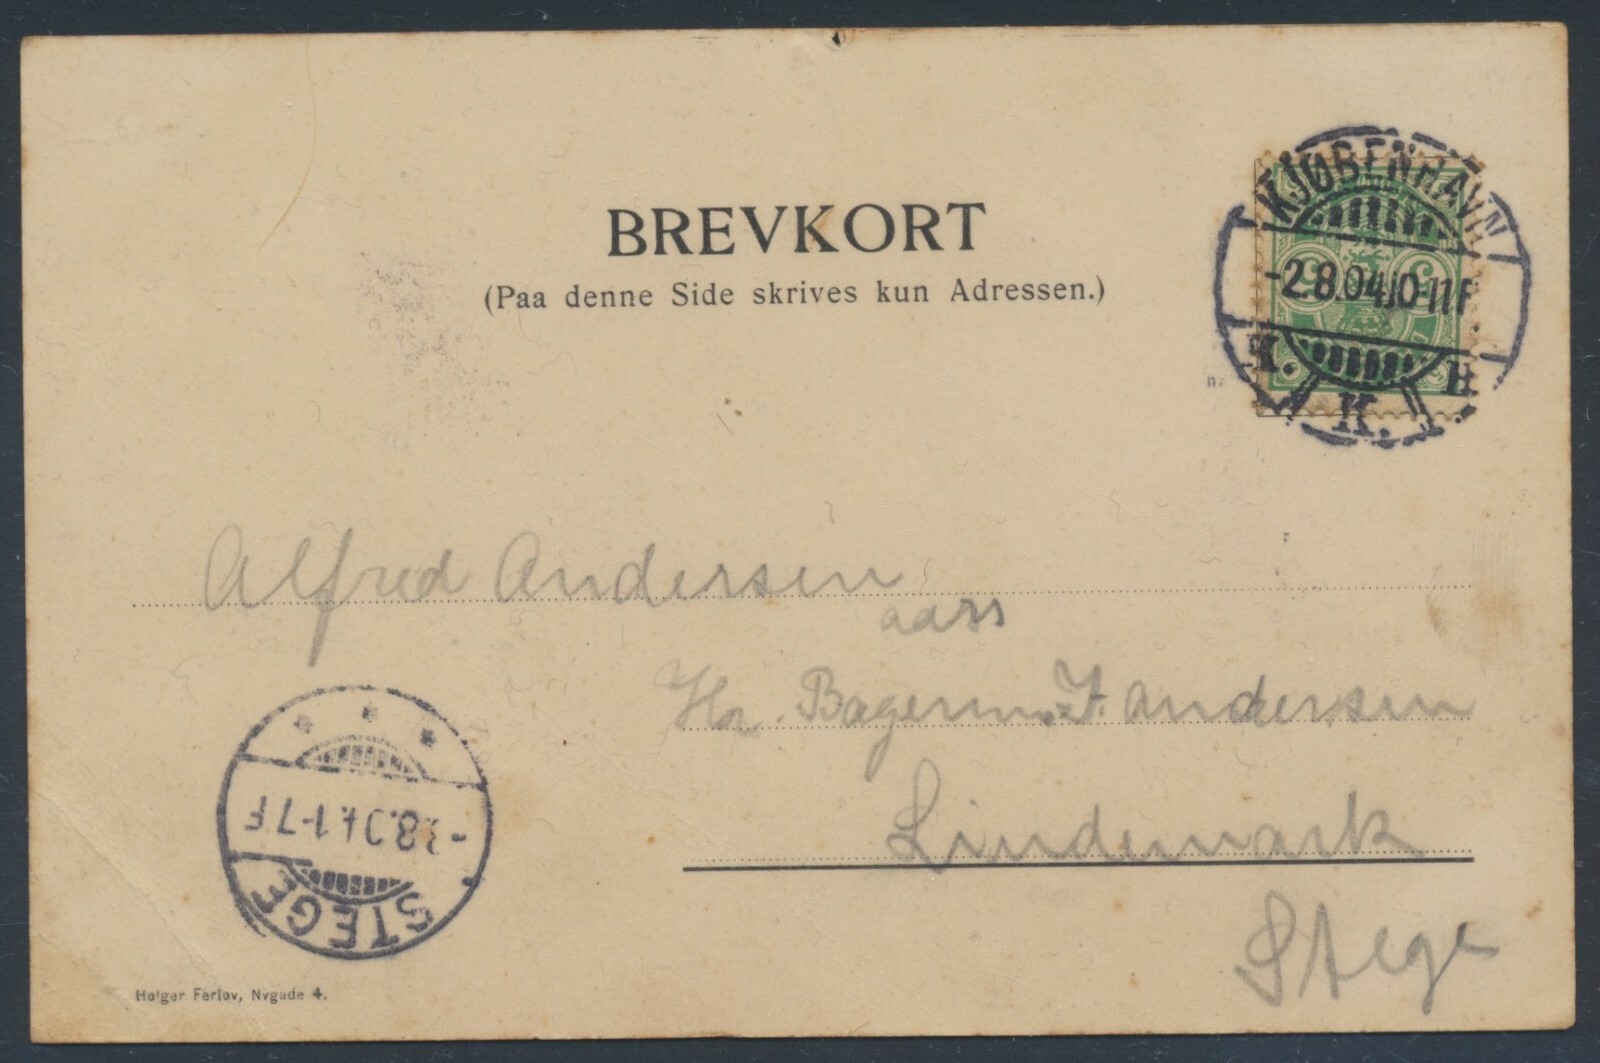 BREVKORT
(Paa denne Side skrives kun Adressen.)
KJØBENHAVN
-2.8.04.10-11F
K. K. B
5 5
Alfred Andersen
Hr. Bagerm. J. Andersen
Lindemark
Stege
-3.8.04.1-7F
STEGE
Holger Ferlov, Nygade 4.